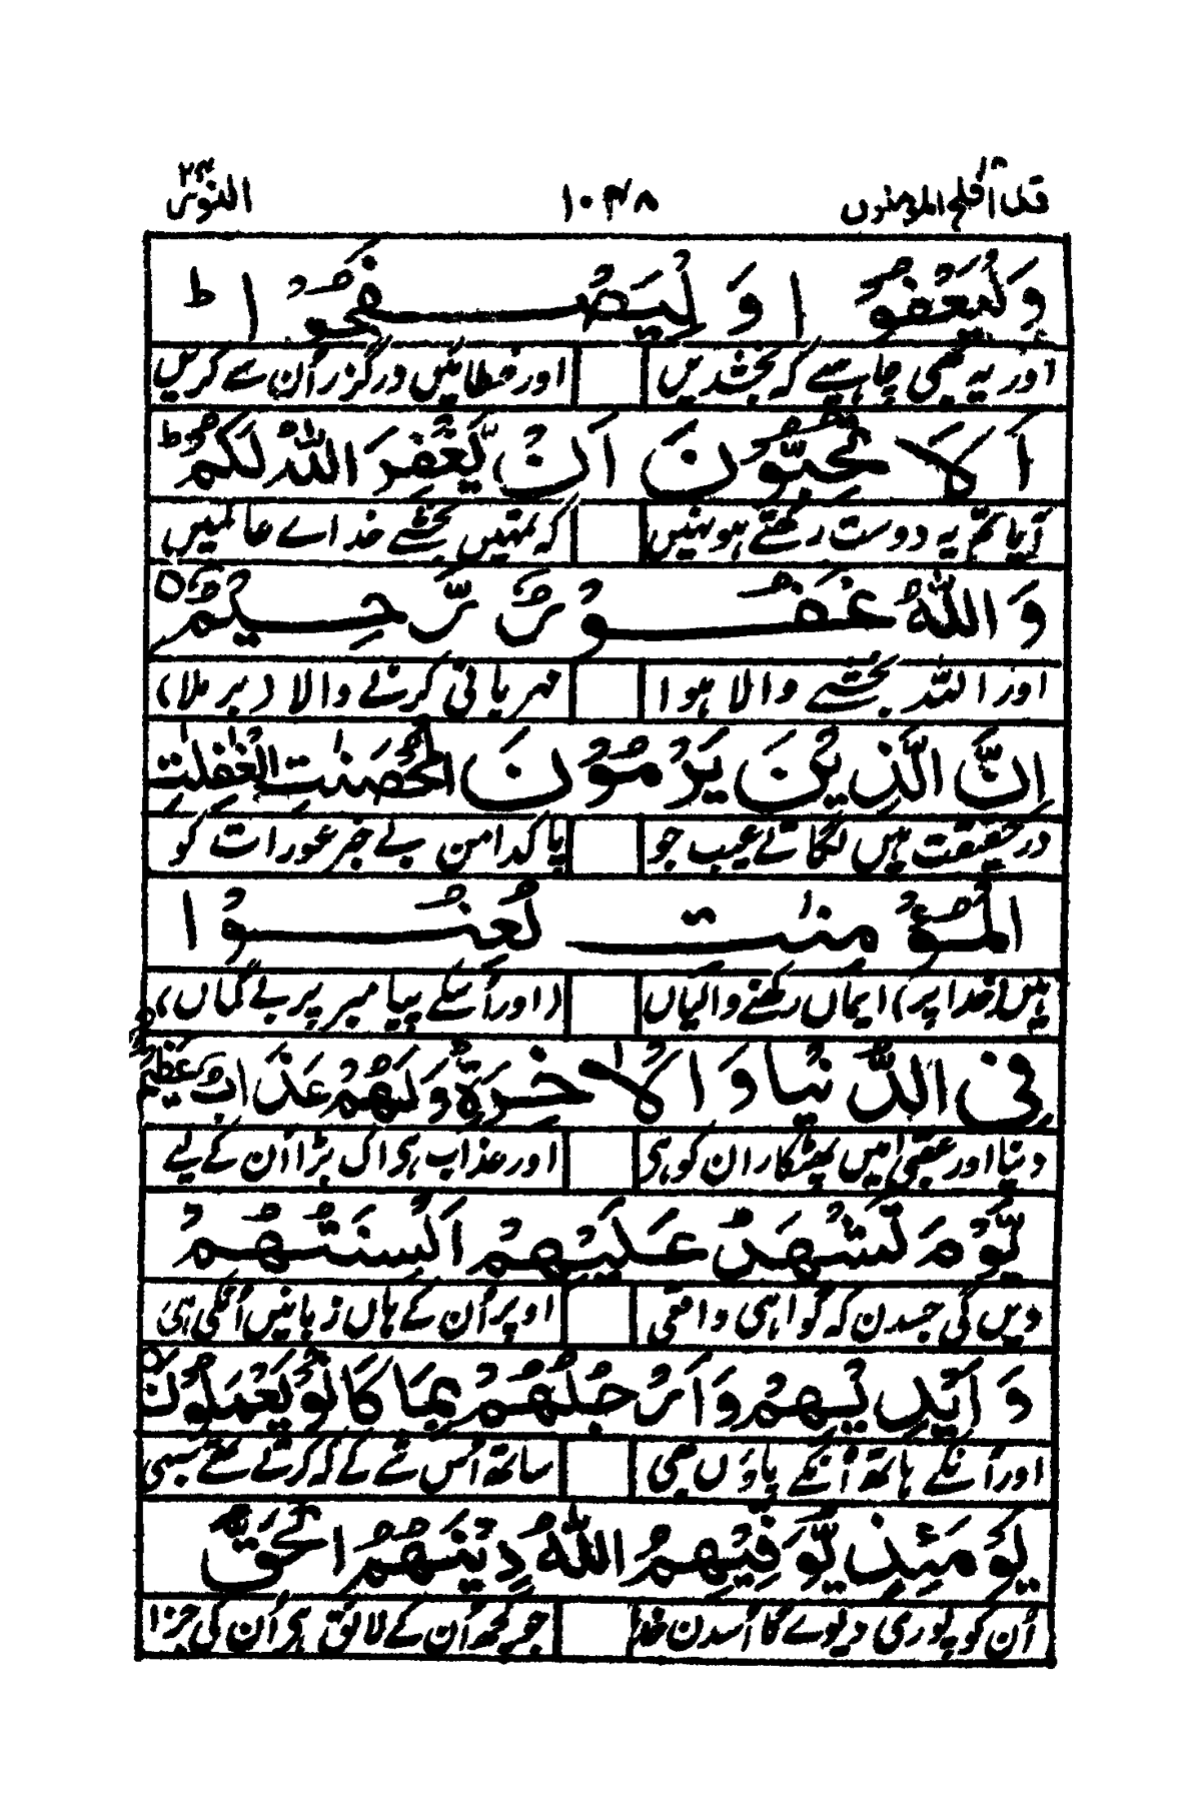 قد افلح المؤمنون ۱۸ ۱۰۴۸ النور ۲۴
وَلْيَعْفُوْا وَلْيَصْفَحُوْا ط
اور یہ بھی چاہیے کہ بخشدیں اور خطائیں درگزر اُن سے کریں
اَلَا تُحِبُّوْنَ اَنْ يَّغْفِرَ اللّٰهُ لَكُمْ ط
آیا تم یہ دوست رکھتے ہو نہیں کہ تمہیں بخشے خداے عالمیں
وَاللّٰهُ غَفُوْرٌ رَّحِيْمٌ ○
اور اللہ بخشے والا ہوا مہربانی کرنے والا (برملا)
اِنَّ الَّذِيْنَ يَرْمُوْنَ الْمُحْصَنٰتِ الْغٰفِلٰتِ
در حقیقت ہیں لگاتے عیب جو پاکدامن بے خبر عورات کو
الْمُؤْمِنٰتِ لُعِنُوْا
ہیں (خدا پر) ایماں رکھنے والیاں (اور اُسکے پیامبر پر بے گماں)
فِى الدُّنْيَا وَالْاٰخِرَةِ وَلَهُمْ عَذَابٌ عَظِيْمٌ
دنیا اور عقبیٰ میں پھٹکار ان کو ہی اور عذاب ہی اک بڑا اُن کے لیے
يَّوْمَ تَشْهَدُ عَلَيْهِمْ اَلْسِنَتُهُمْ
دیں گی جسدن کہ گواہی واقعی اوپر اُن کے ہاں زبانیں اُنکی ہی
وَاَيْدِيْهِمْ وَاَرْجُلُهُمْ بِمَا كَانُوْا يَعْمَلُوْنَ ○
اور اُنکے ہاتھ اُنکے پاؤں بھی ساتھ اُس شے کے کہ کرتے تھے سبھی
يَوْمَئِذٍ يُّوَفِّيْهِمُ اللّٰهُ دِيْنَهُمُ الْحَقَّ
اُن کو پوری دیوے گا اُسدن خدا جو کچھ اُن کے لائق ہی اُن کی جزا